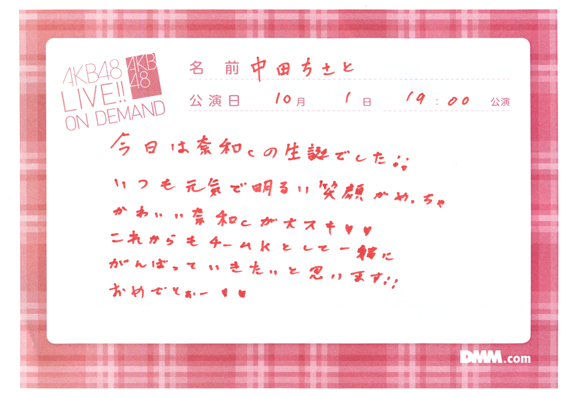 AKB48
LIVE!!
ON DEMAND
AKB
48
名 前 中田ちさと
公演日 10月 1日 19:00 公演
今日は奈和cの生誕でした!!
いつも元気で明るい笑顔がめっちゃ
かわいい奈和cが大スキ♥♥
これからもチームKとして一緒に
がんばっていきたいと思います!!
おめでとぉー♥♥
DMM.com